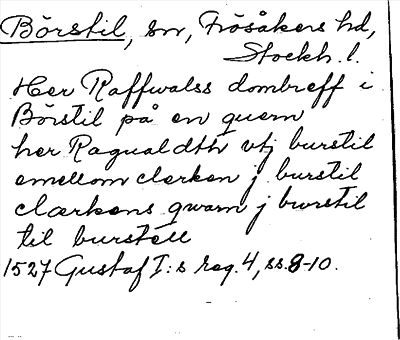 Börstil, sn, Frösåkers hd,
Stockh. l.
Her Raffwalss dombreff i
Börstil på en quern
her Ragualdth vtj burstil
emellom clerken j burstil
clærkens qwarn j burstil
til burstell
1527 Gustaf I:s reg. 4, ss. 8-10.